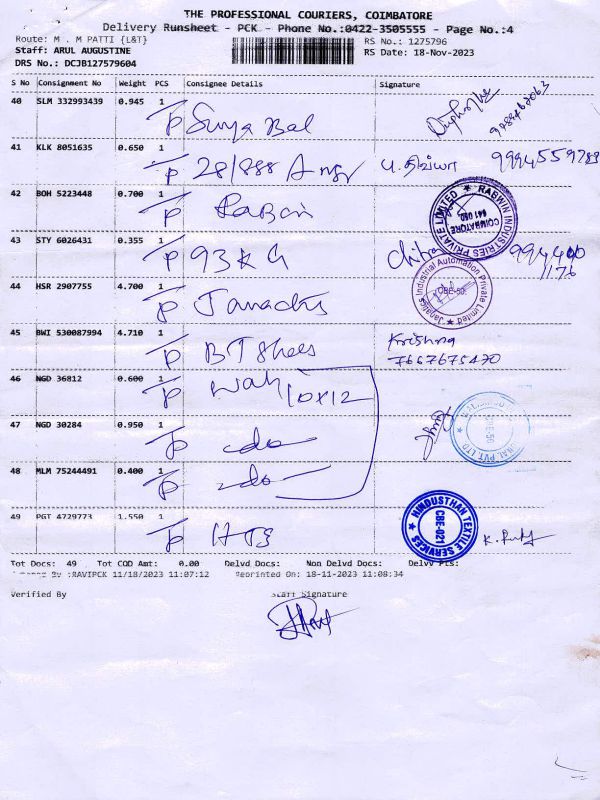 THE PROFESSIONAL COURIERS, COIMBATORE
Delivery Runsheet - PCK - Phone No.:0422-3505555 - Page No.:4
Route: M . M PATTI {L&T}
RS No.: 1275796
Staff: ARUL AUGUSTINE
RS Date: 18-Nov-2023
DRS No.: DCJB127579604
S No Consignment No Weight PCS Consignee Details Signature
40 SLM 332993439 0.945 1
Surya Bal
41 KLK 8051635 0.650 1
28/888 A
9994559783
42 BOH 5223448 0.700 1
RABWIN INDUSTRIES PRIVATE LIMITED COIMBATORE 641 050
43 STY 6026431 0.355 1
93 K G
Chitra 994400 1176
44 HSR 2907755 4.700 1
Janatics Industrial Automation Private Limited CBE-50.
45 BWI 530087994 4.710 1
BT Shees
Krishna
7667675470
46 NGD 36812 0.600 1
10x12
47 NGD 30284 0.950 1
do
48 MLM 75244491 0.400 1
do
49 PGT 4729773 1.550 1
HTS
HINDUSTHAN TEXTILE SERVICES CBE-021
Tot Docs: 49 Tot COD Amt: 0.00 Delvd Docs: Non Delvd Docs: Delvd Pts:
By :RAVIPCK 11/18/2023 11:07:12 Reprinted On: 18-11-2023 11:08:34
Verified By
Staff Signature